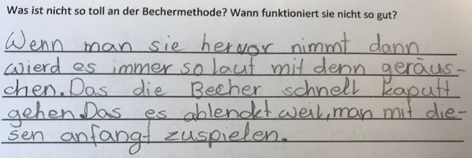 Was ist nicht so toll an der Bechermethode? Wann funktioniert sie nicht so gut?
Wenn man sie hervor nimmt dann
wierd es immer so laut mit denn geräus-
chen. Das die Becher schnell kaputt
gehen. Das es ablenckt weil, man mit die-
sen anfangt zuspielen.